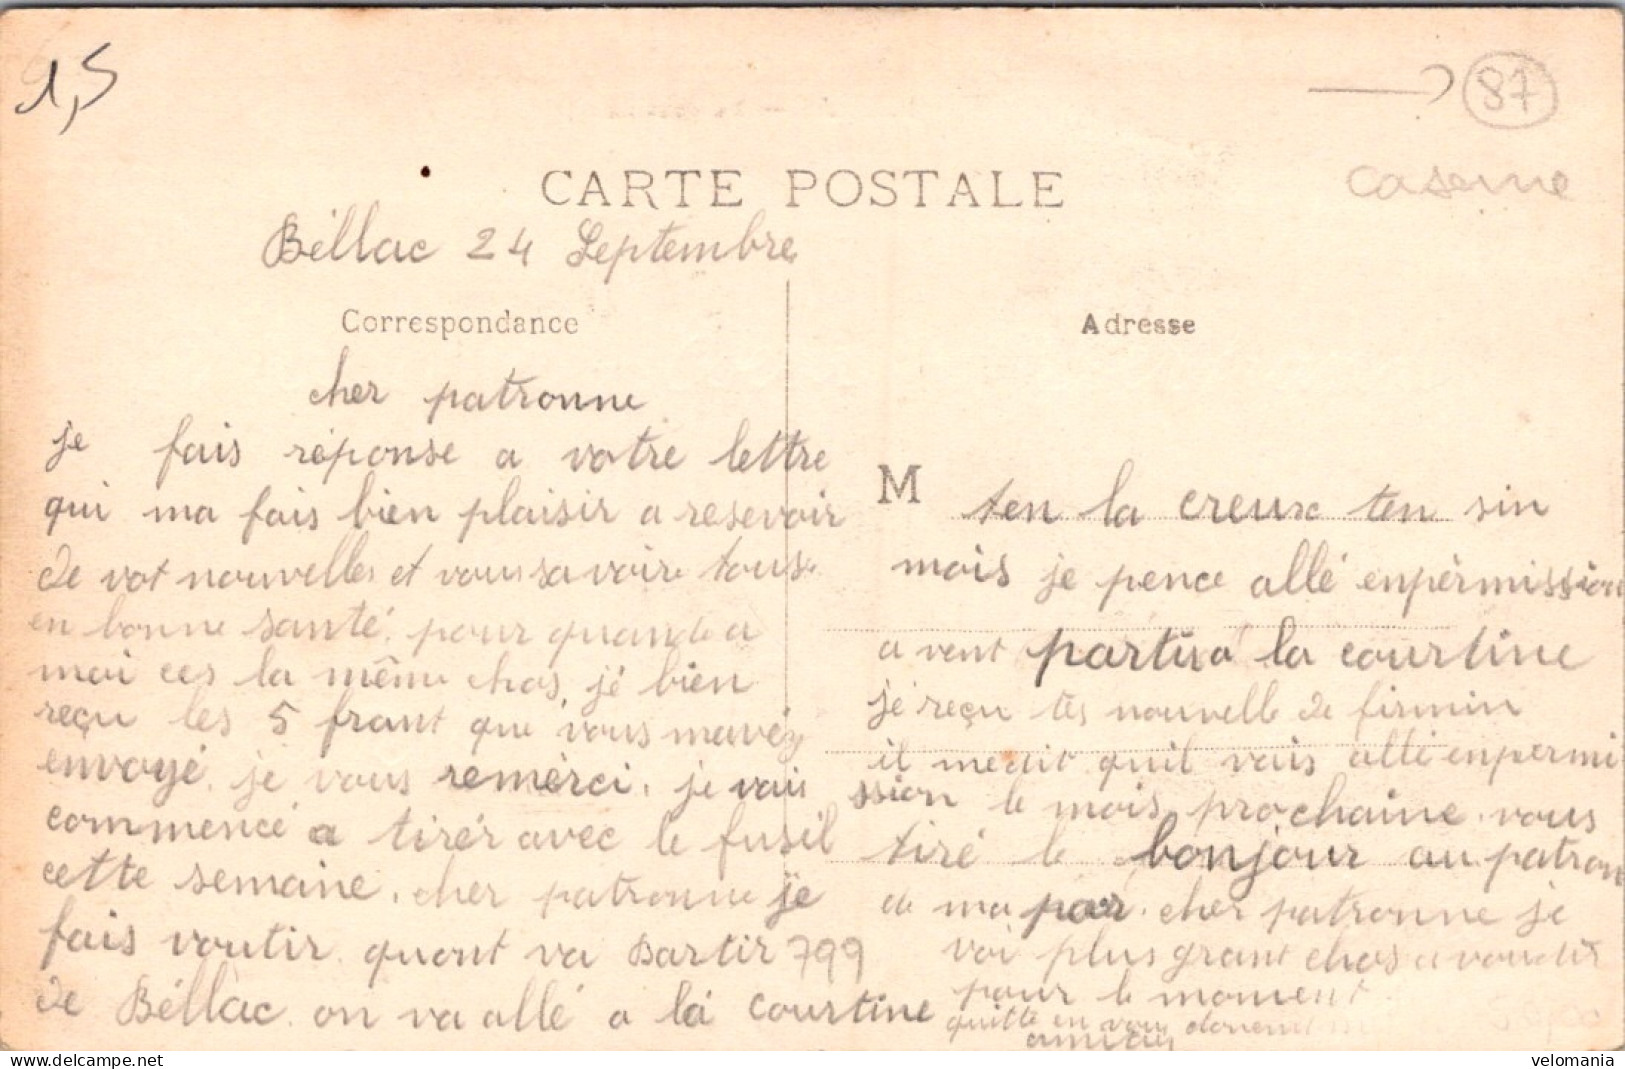 1,5
87
caserne
CARTE POSTALE
Béllac 24 Septembre
Correspondance
cher patronne
je fais réponse a votre lettre
qui ma fais bien plaisir a resevoir
de vot nouvelles et vous savoire tous
en bonne santé. pour quande a
moi ces la même chos. jé bien
reçu les 5 frant que vous mavéz
envoyé. je vous remérci. je vais
commencé a tirér avec le fusil
cette semaine. cher patronne je
fais voutir quont va partir 799
de Béllac. on va allé a la courtine
Adresse
M
ten la creux ten sin
mois je pence allé enpérmission
a vent partir a la courtine
jé reçu tes nouvelle de firmin
il medit quil vais allé enpermi
ssion le mois prochaine. vous
tiré le bonjour au patron
de ma par. cher patronne je
voi plus grant chos a voudir
pour le moment
quitte en vous donent
amitiés
velomania